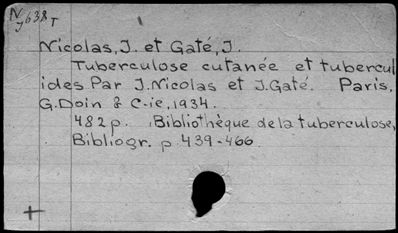 N
J638T
Nicolas, J. et Gaté, J.
Tuberculose cutanée et tubercul
ides Par J. Nicolas et J. Gaté. Paris,
G. Doin & C-ie, 1934.
482 p. Bibliothèque de la tuberculose,
Bibliogr. p. 439-466.